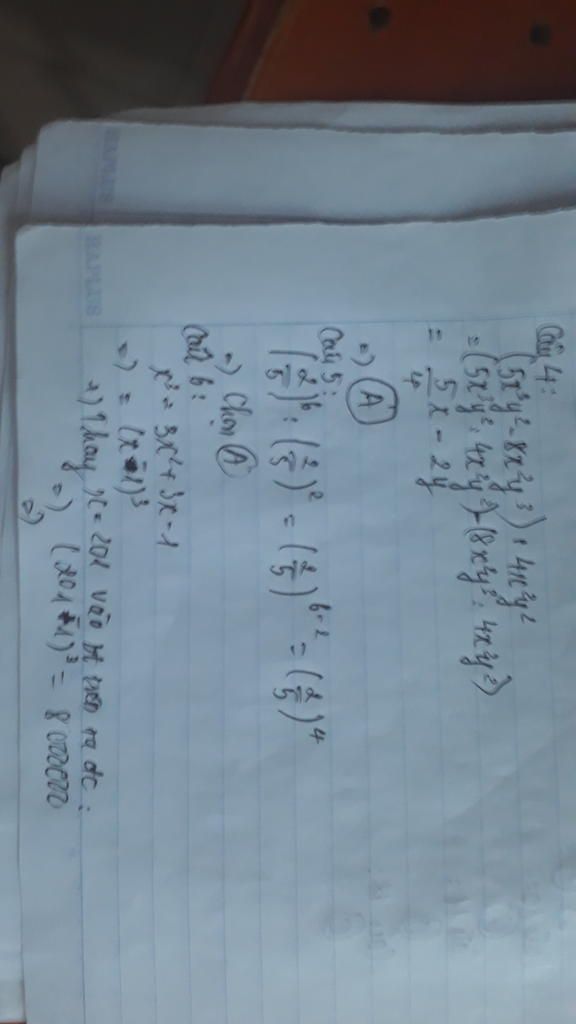 HAPLUS HAPLUS
Câu 4:
(5x³y² - 8x²y³) : 4x²y²
= (5x³y² : 4x²y²) - (8x²y³ : 4x²y²)
= 5/4 x - 2y
=) A
Câu 5:
(2/5)⁶ : (2/5)² = (2/5)⁶⁻² = (2/5)⁴
=) Chọn A
Câu 6:
x³ = 3x² + 3x - 1
=) = (x - 1)³
=) Thay x = 201 vào bt trên ta dc :
=) (201 - 1)³ = 8000000
=)